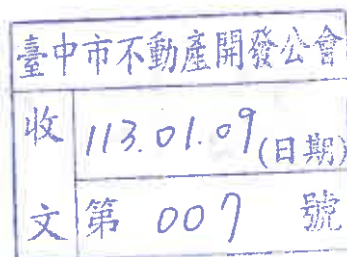 臺中市不動產開發公會
收 113.01.09(日期)
文 第 007 號